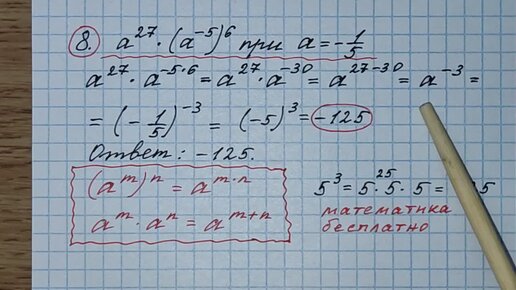 8. a²⁷ · (a⁻⁵)⁶ при a = -1/5
a²⁷ · a⁻⁵·⁶ = a²⁷ · a⁻³⁰ = a²⁷⁻³⁰ = a⁻³ =
= (-1/5)⁻³ = (-5)³ = -125
Ответ: -125.
(aᵐ)ⁿ = aᵐ·ⁿ
aᵐ · aⁿ = aᵐ⁺ⁿ
25
5³ = 5 · 5 · 5 = 5
математика
бесплатно